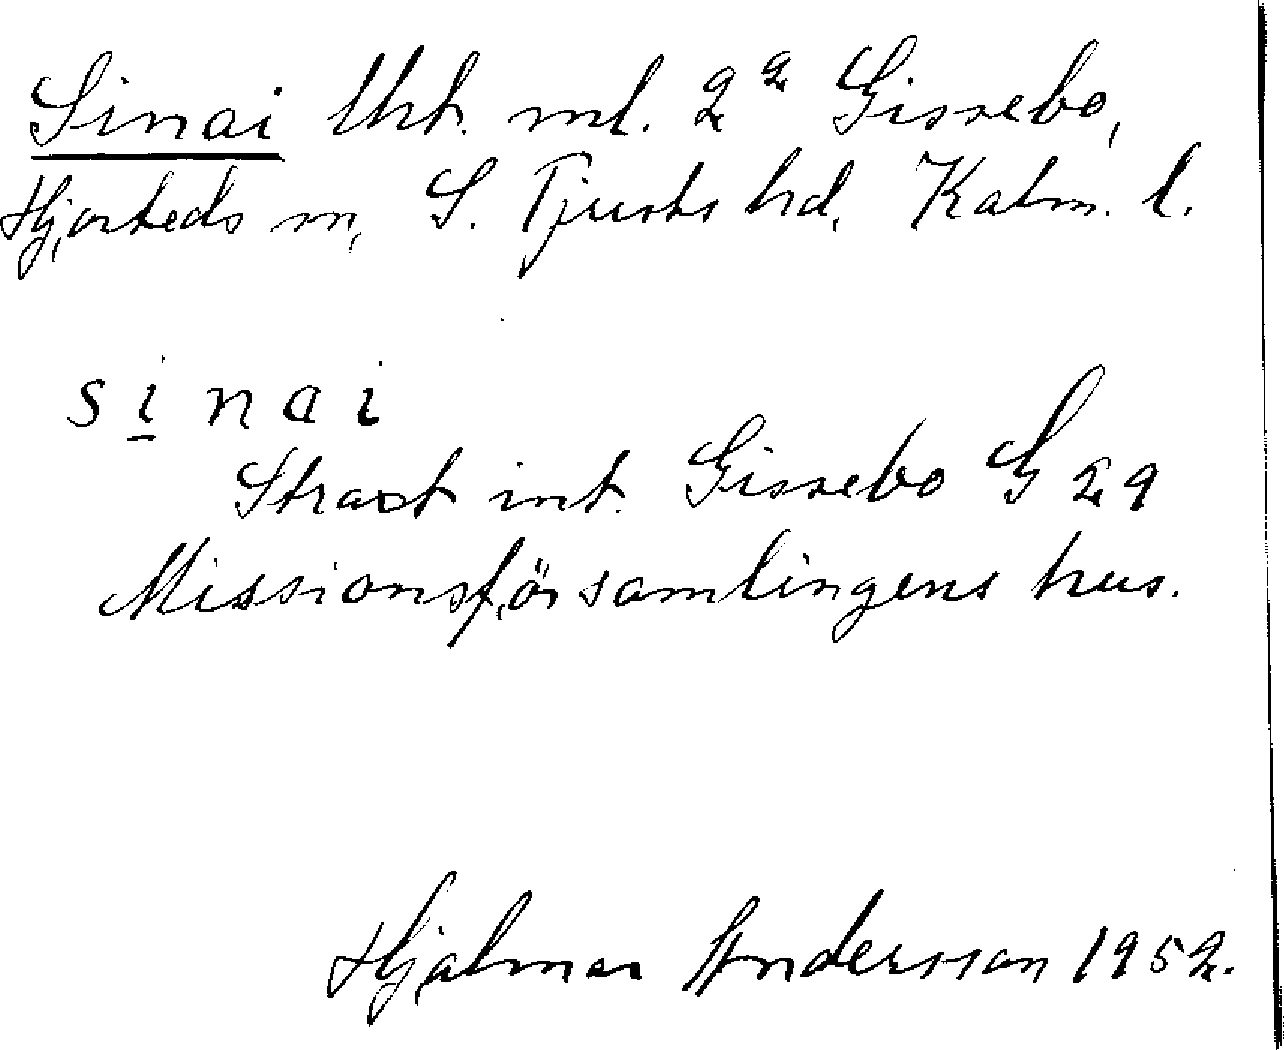 Sinai Urt. ml. 2ª Gissebo,
Hjorteds sn, S. Tjusts hd, Kalm. l.
sinai
Strax int. Gissebo G 29
Missionsförsamlingens hus.
Hjalmar Andersson 1952.